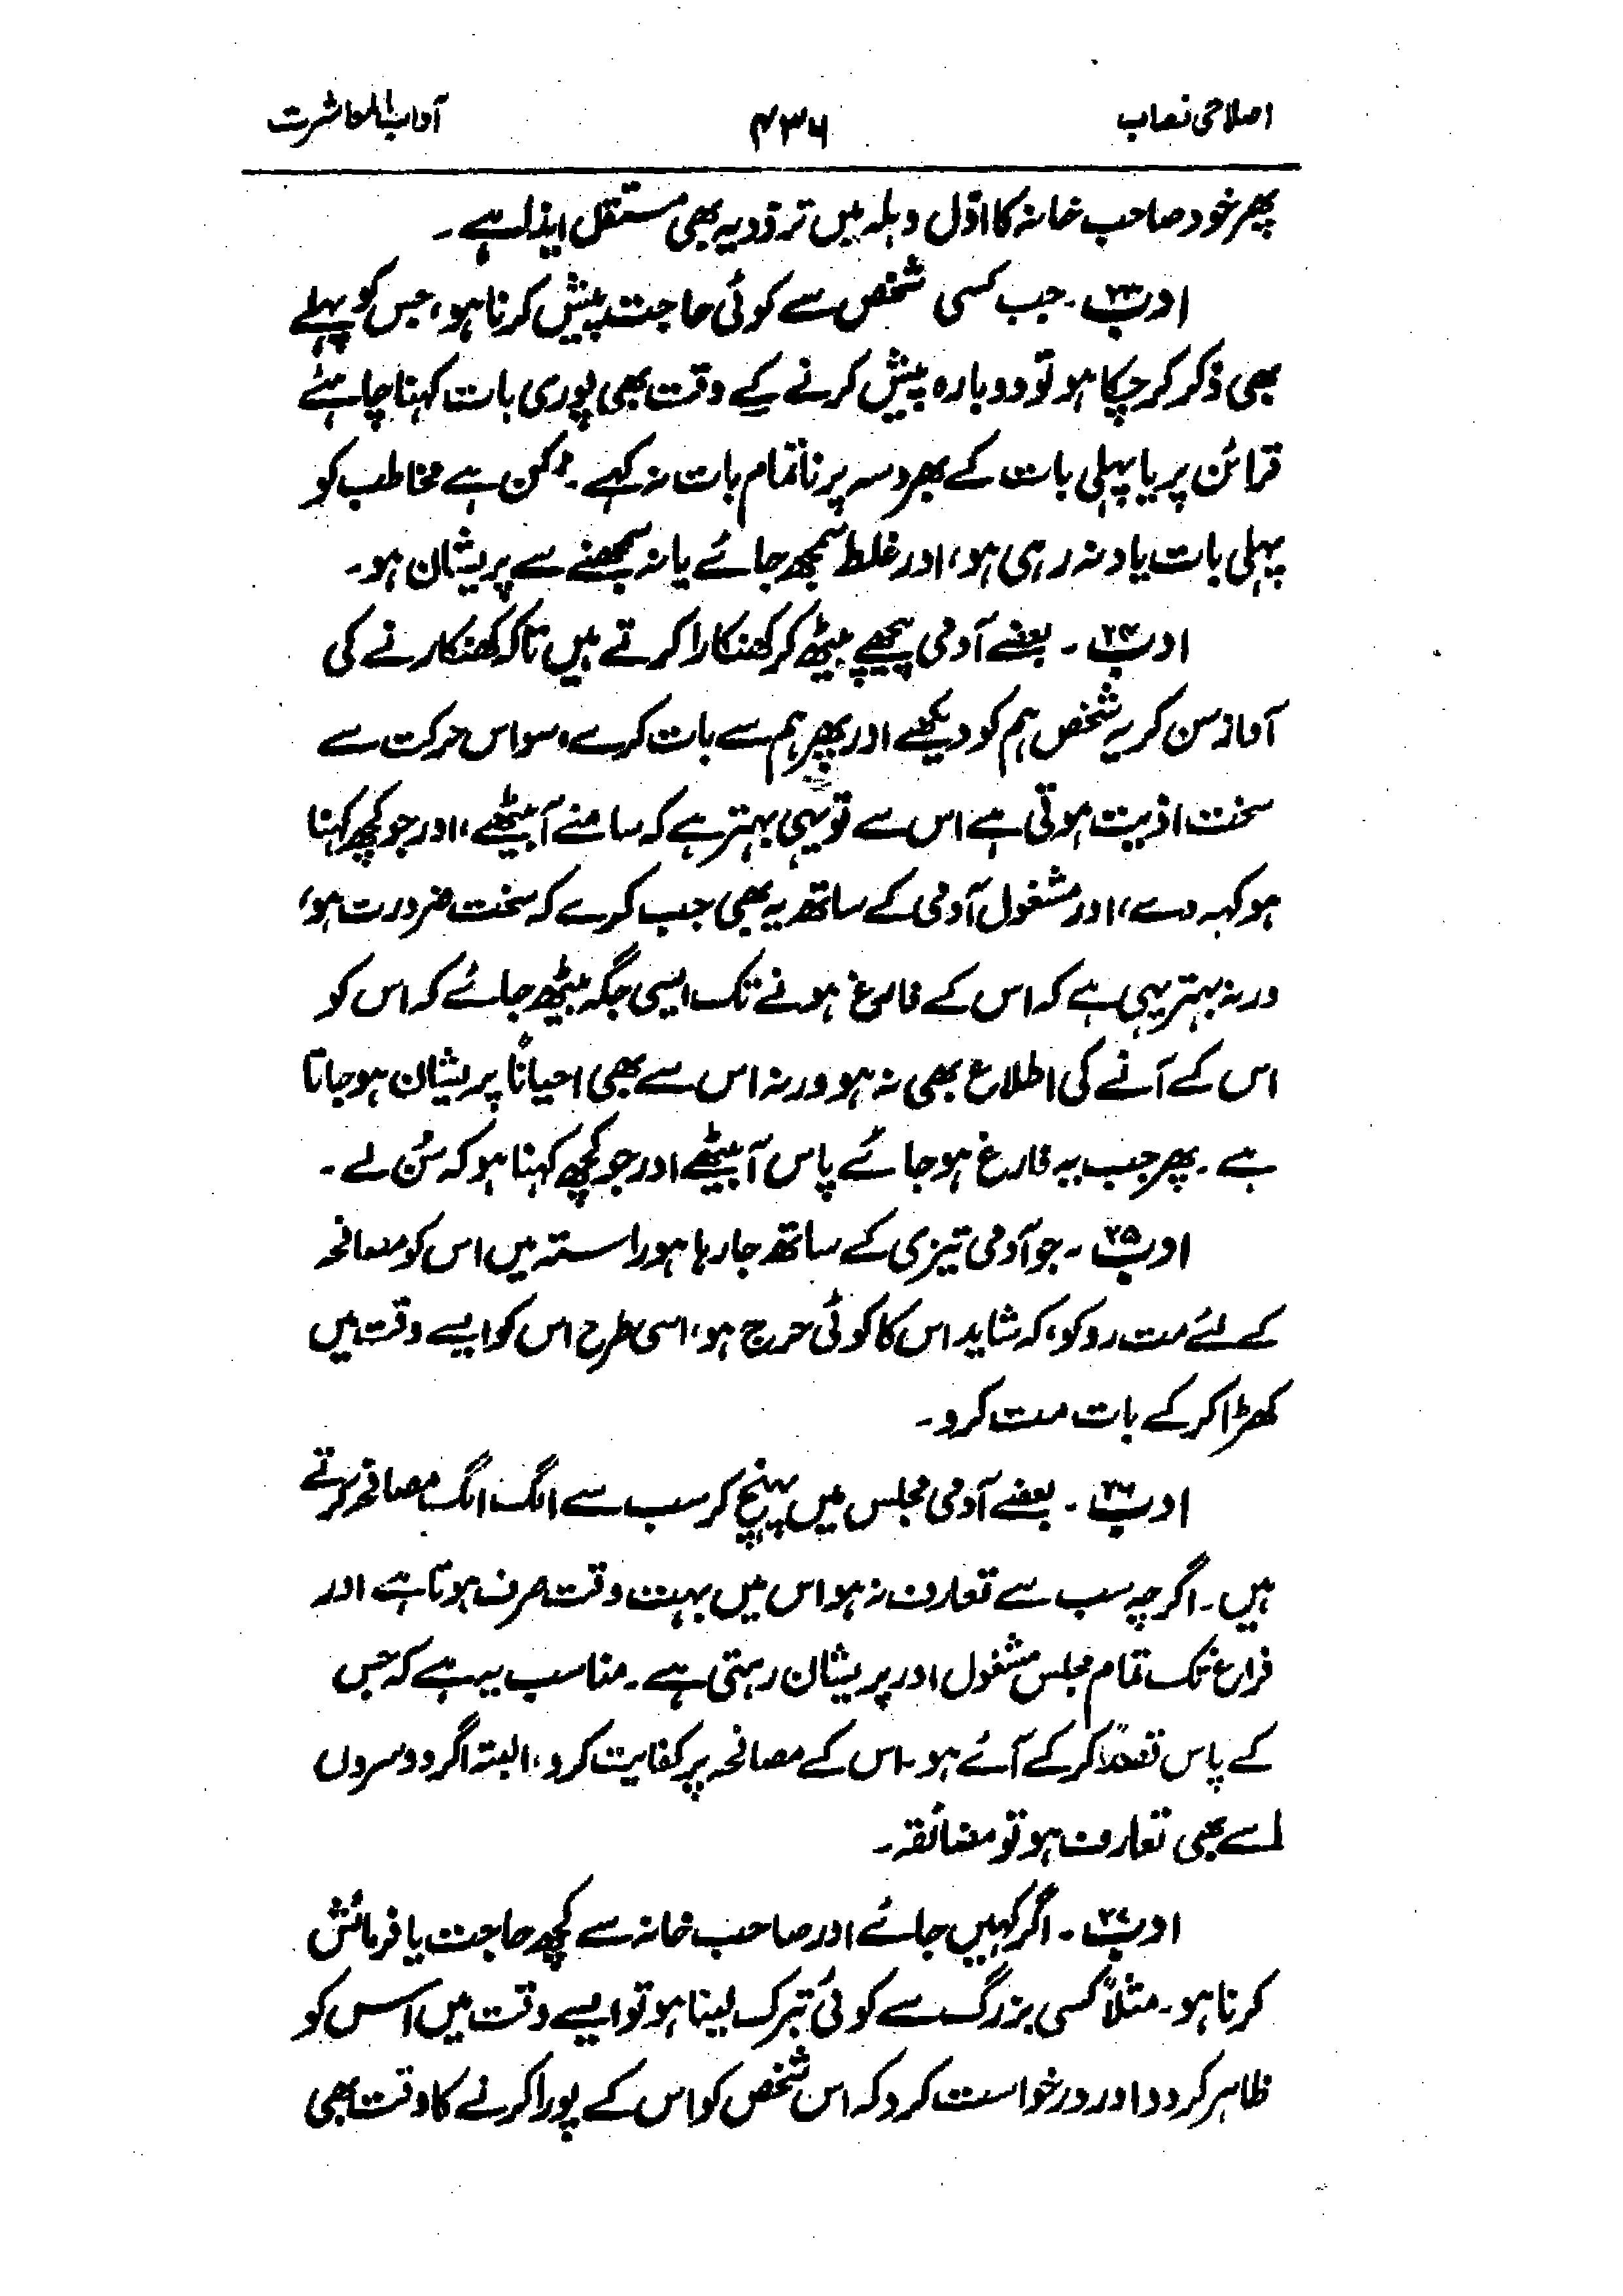 اصلاحی نصاب ۴۳۶ آداب المعاشرت
پھر خود صاحب خانہ کا اوّل وہلہ میں تردد یہ بھی مستقل ایذا ہے۔
ادب ۲۳۔ جب کسی شخص سے کوئی حاجت پیش کرنا ہو، جس کو پہلے
بھی ذکر کر چکا ہو تو دوبارہ پیش کرنے کے وقت بھی پوری بات کہنا چاہئے
قرائن پر یا پہلی بات کے بھروسہ پر ناتمام بات نہ کہے۔ ممکن ہے مخاطب کو
پہلی بات یاد نہ رہی ہو، اور غلط سمجھ جائے یا نہ سمجھنے سے پریشان ہو۔
ادب ۲۴۔ بعضے آدمی پیچھے بیٹھ کر کھنکارا کرتے ہیں تاکہ کھنکارنے کی
آواز سن کر یہ شخص ہم کو دیکھے اور پھر ہم سے بات کرے، سو اس حرکت سے
سخت اذیت ہوتی ہے اس سے تو یہی بہتر ہے کہ سامنے آ بیٹھے، اور جو کچھ کہنا
ہو کہہ دے، اور مشغول آدمی کے ساتھ یہ بھی جب کرے کہ سخت ضرورت ہو،
ورنہ بہتر یہی ہے کہ اس کے فارغ ہونے تک ایسی جگہ بیٹھ جائے کہ اس کو
اس کے آنے کی اطلاع بھی نہ ہو ورنہ اس سے بھی احیاناً پریشان ہو جاتا
ہے۔ پھر جب یہ فارغ ہو جائے پاس آ بیٹھے اور جو کچھ کہنا ہو کہ سُن لے۔
ادب ۲۵۔ جو آدمی تیزی کے ساتھ جا رہا ہو راستہ میں اس کو مصافحہ
کے لئے مت روکو، کہ شاید اس کا کوئی حرج ہو، اسی طرح اس کو ایسے وقت میں
کھڑا کر کے بات مت کرو۔
ادب ۲۶۔ بعضے آدمی مجلس میں پہنچ کر سب سے الگ الگ مصافحہ کرتے
ہیں۔ اگرچہ سب سے تعارف نہ ہو اس میں بہت وقت صرف ہوتا ہے اور
فراغ تک تمام مجلس مشغول اور پریشان رہتی ہے۔ مناسب یہ ہے کہ جس
کے پاس قصداً کر کے آئے ہو۔ اس کے مصافحہ پر کفایت کرو، البتہ اگر دوسروں
سے بھی تعارف ہو تو مضائقہ۔
ادب ۲۷۔ اگر کہیں جائے اور صاحب خانہ سے کچھ حاجت یا فرمائش
کرنا ہو۔ مثلاً کسی بزرگ سے کوئی تبرک لینا ہو تو ایسے وقت میں اس کو
ظاہر کر دو اور درخواست کرو کہ اس شخص کو اس کے پورا کرنے کا وقت بھی